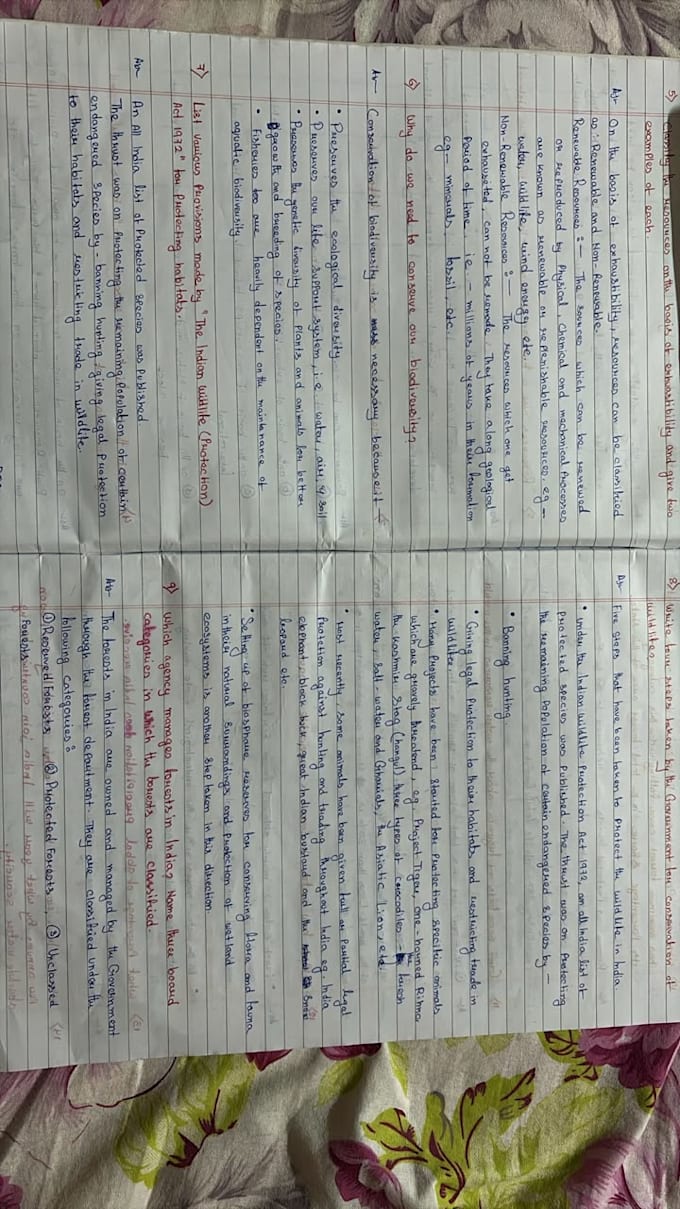 5) Classify the resources on the basis of exhaustibility and give two
examples of each
Ans- On the basis of exhaustibility, resources can be classified
as :- Renewable and Non-Renewable.
Renewable Resources :- The sources which can be renewed
or reproduced by Physical, Chemical and mechanical Processes
are known as renewable or replenishable resources. eg -
water, wildlife, wind energy etc.
Non-Renewable Resources :- The resources which one get
exhausted can not be remade. They take along geological
Period of time i.e. - millions of years in their formation
eg - minerals, fossil, etc.
6) Why do we need to conserve our biodiversity?
An- Conservation of biodiversity is necessary because it -
• Preserves the ecological diversity.
• Preserves our life support system, i.e. water, air, soil
• Preserves the genetic diversity of Plants and animals for better
growth and breeding of species.
• Fisheries too are heavily dependent on the maintenance of
aquatic biodiversity.
7) List various Provisions made by "The Indian Wildlife (Protection)
Act 1972" for Protecting habitats.
An- An All India list of Protected Species was Published
The thrust was on Protecting the remaining Population of certain
endangered species by - banning hunting, giving legal Protection
to their habitats, and restricting trade in wildlife.
8) Write four steps taken by the Government for conservation of
wildlife?
An- Five steps that have been taken to Protect the wildlife in India.
• Under the Indian wildlife Protection Act 1972, an all India list of
Protected species was Published. The thrust was on Protecting
the remaining Population of certain endangered species by -
• Banning hunting
• Giving legal Protection to their habitats, and restricting trade in
wildlife.
• Many Projects have been started for Protecting specific animals
which are gravely threatend, eg. Project Tiger, one-horned Rihno
the Kashmir Stag (hangul), three types of crocodiles - fresh
water, Salt-water and Gharials, the Asiatic Lion, etc
• Most recently, some animals have been given full or Partial legal
Protection against hunting and trading throughout India eg. India
elephant, black buck, great Indian bustard and the Snow
leopard etc.
• Setting up of biosphere reserves for conserving flora and fauna
in their natural surroundings and protection of wetland
ecosystems is another step taken in this direction.
9) Which agency manages forests in India? Name three board
categories in which the forests are classified.
An- The forests in India are owned and managed by the Government
through the forest department. They are classified under the
following categories?
① Reserved Forests ② Protected Forests ③ Unclassed
Forests